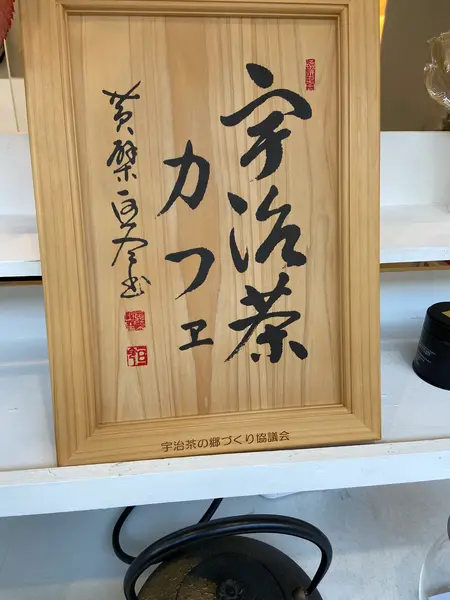 宇治茶
カフヱ
黄檗
宇治茶の郷づくり協議会